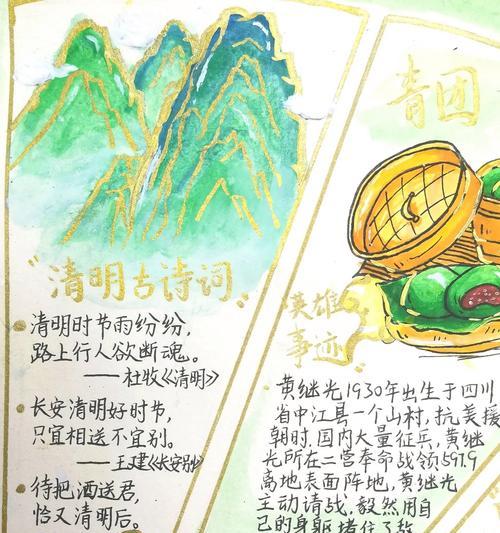 "清明古诗词"
清明时节雨纷纷,
路上行人欲断魂。
——杜牧《清明》
长安清明好时节,
只宜相送不宜别。
——王建《长安别》
待把酒送君,
恰又清明后。
青团
英雄
事迹
黄继光1930年出生于四川
省中江县一个山村,抗美援
朝时,国内大量征兵,黄继
光所在二营奉命战领597.9
高地表面阵地,黄继光
主动请战,毅然用自
己的身躯堵住了敌